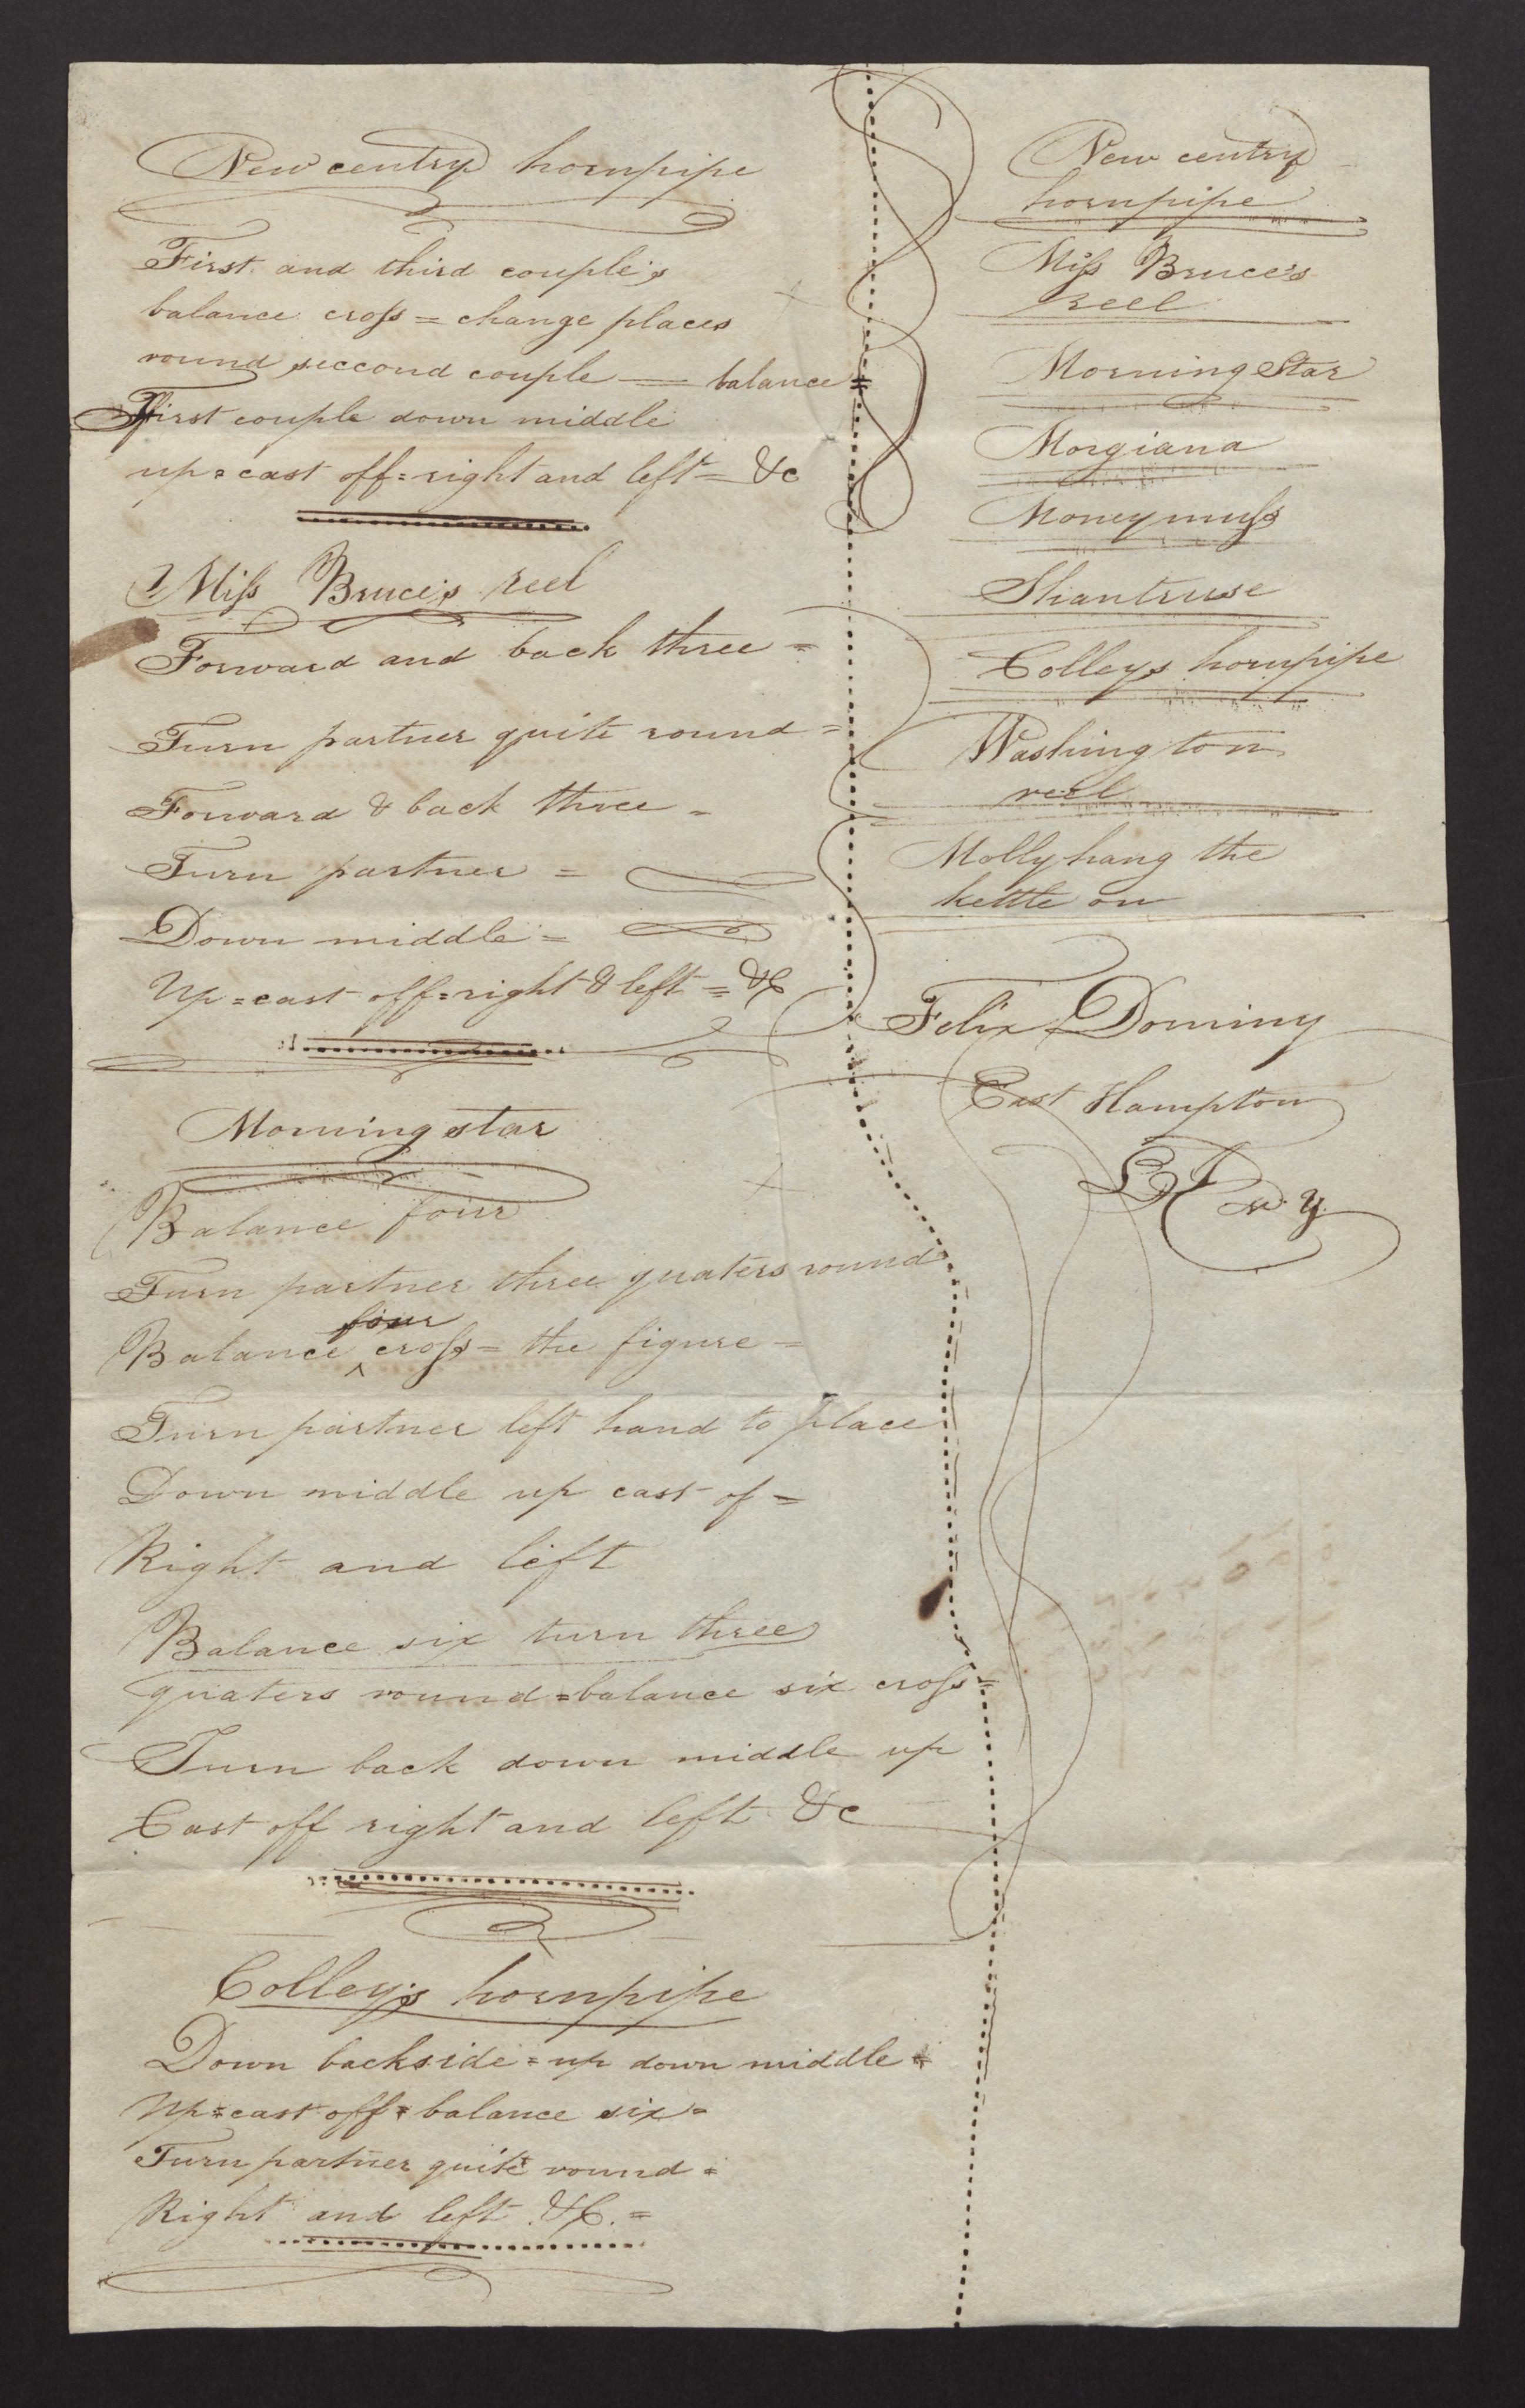 New centry hornpipe
First and third couple's
balance cross = change places
round seccond couple = balance =
First couple down middle
up = cast off = right and left = &c
Miss Bruce's reel
Forward and back three =
Turn partner quite round =
Forward & back three =
Turn partner =
Down middle =
Up = cast off = right & left = &C
Morning star
Balance four
Turn partner three quaters round
four
Balance ^ cross = the figure =
Turn partner left hand to place
Down middle up cast of =
Right and left
Balance six turn three
quaters round = balance six cross =
Turn back down middle up
Cast off right and left &c
Colley's hornpipe
Down backside = up down middle =
Up = cast off = balance six =
Turn partner quite round =
Right and left &C. =
New centry
hornpipe
Miss Bruce's
reel
Morning Star
Morgiana
Moneymuss
Shantruse
Colleys hornpipe
Washington
reel
Molly hang the
kettle on
Felix Dominy
East Hampton